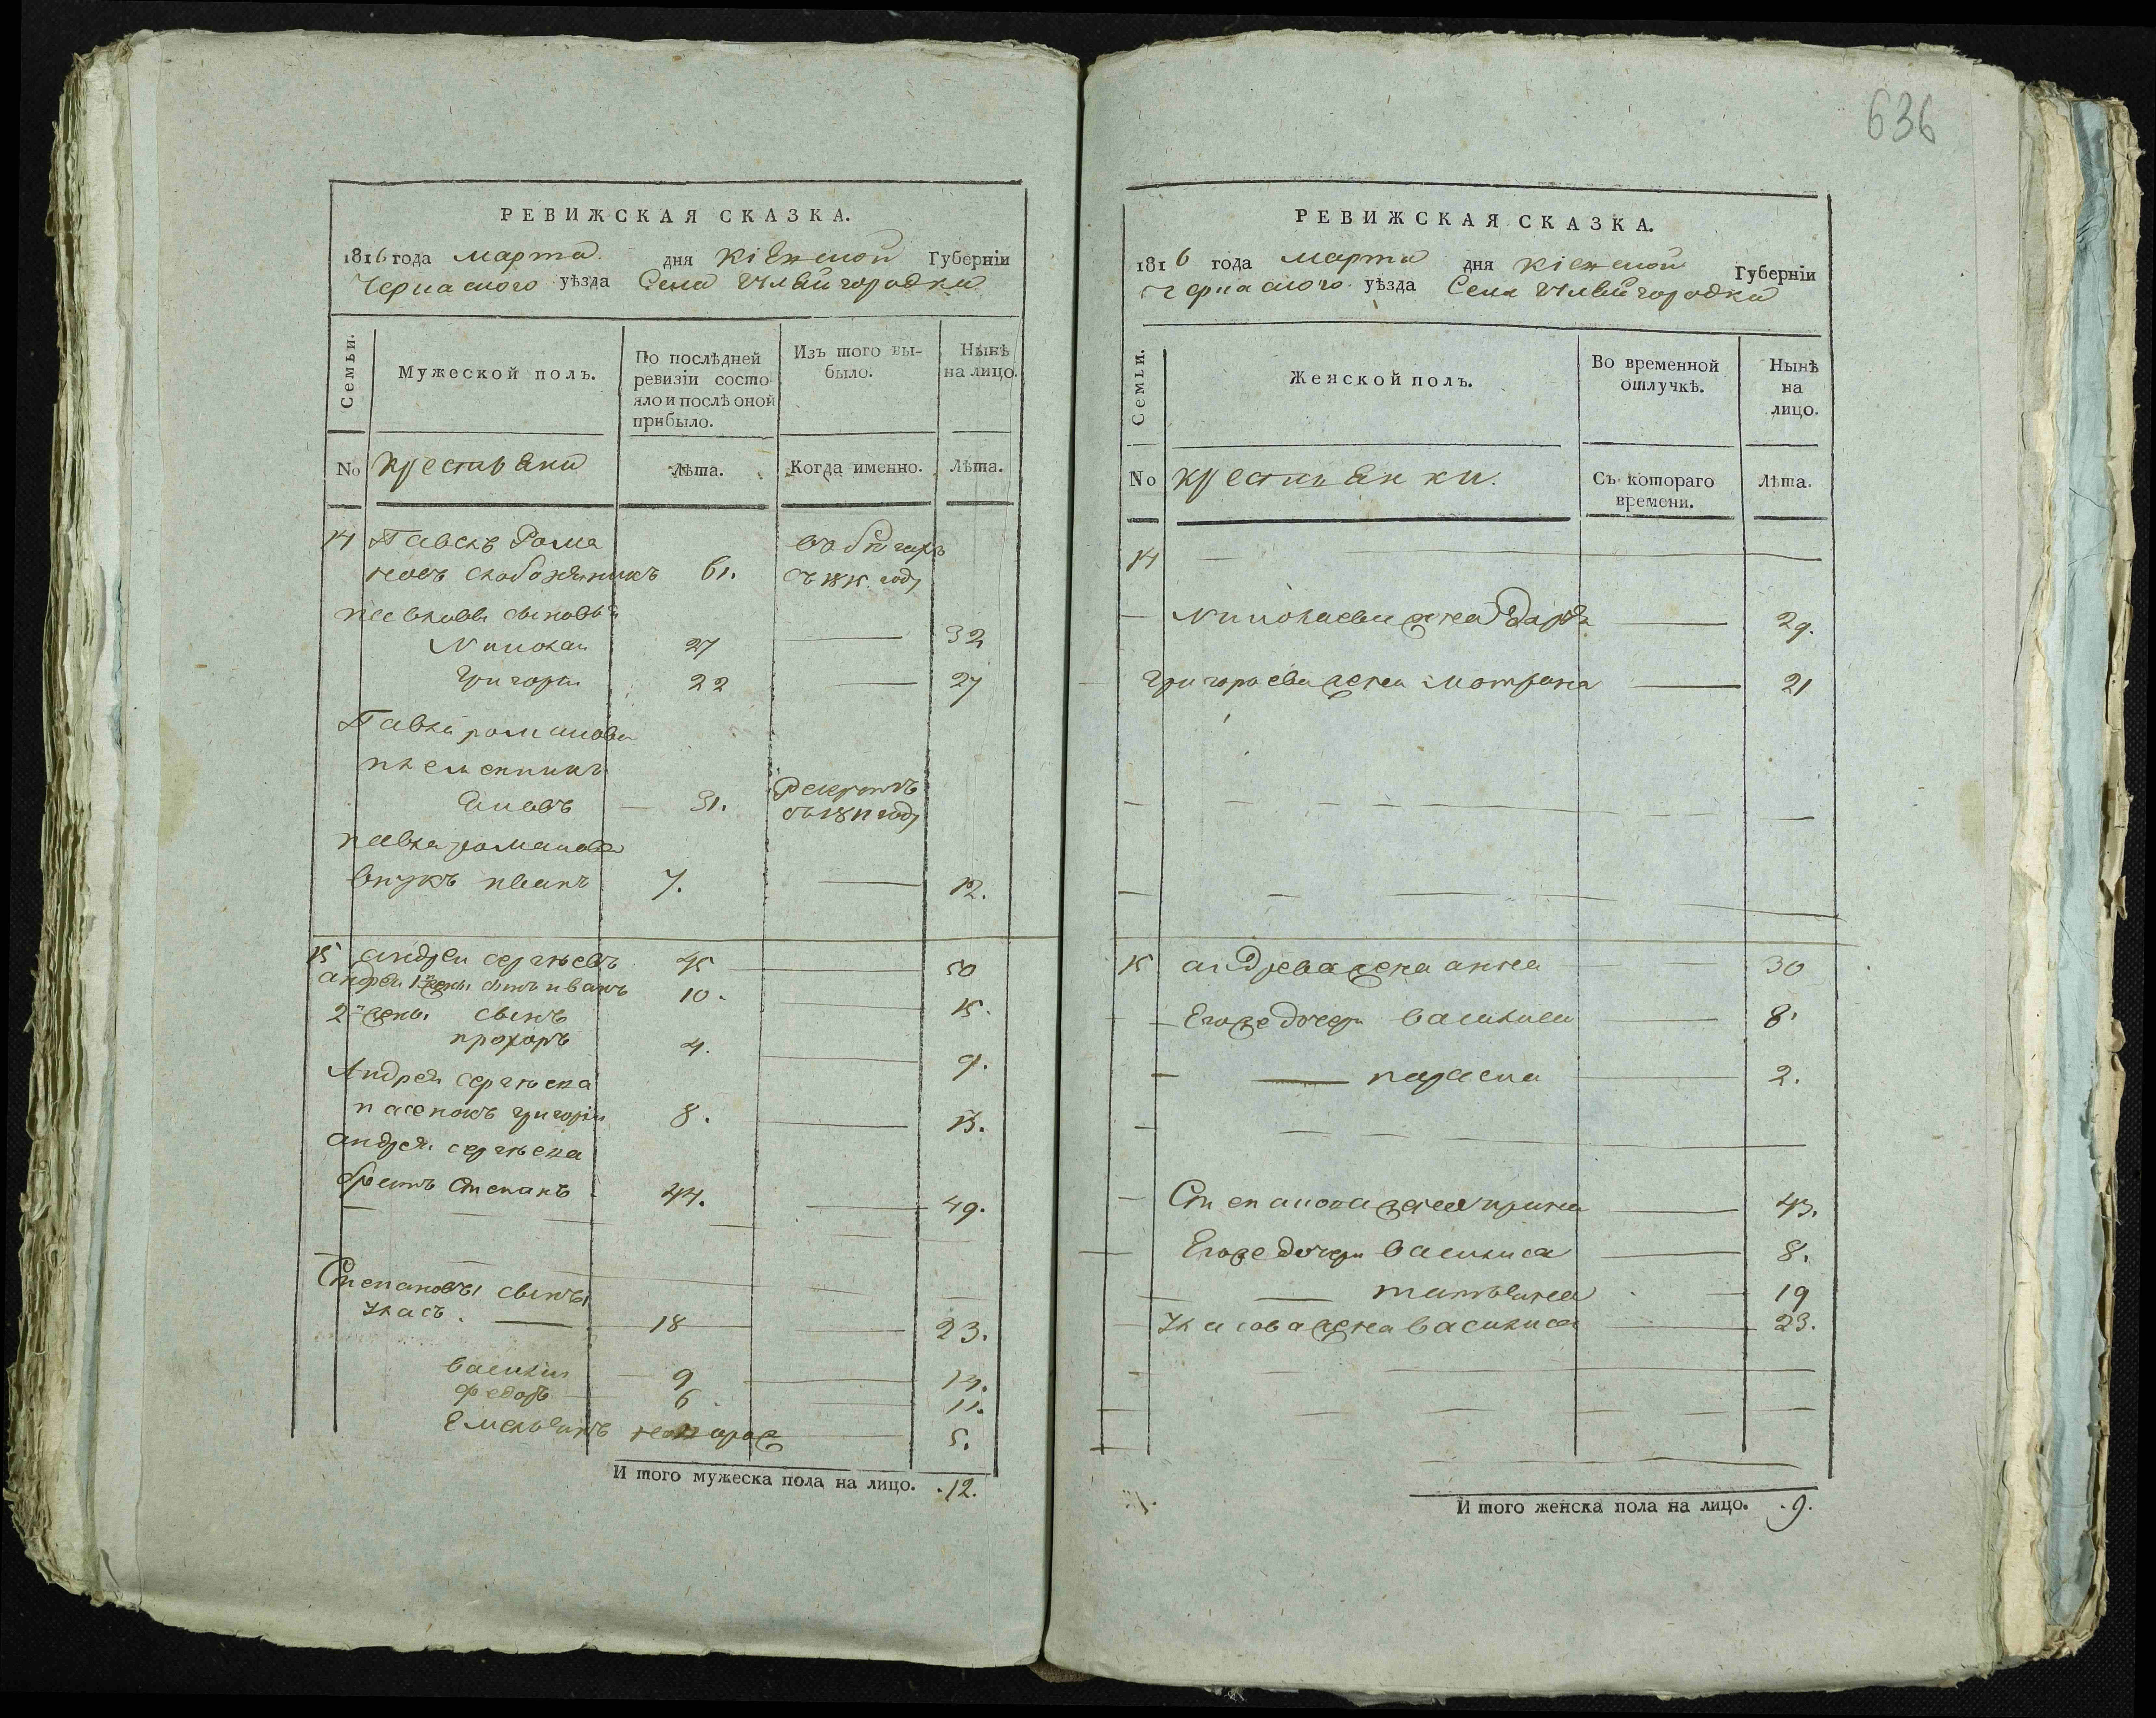 РЕВИЖСКАЯ СКАЗКА.
1816 года марта дня Кіевской Губерніи
Черкаского уѣзда Села
Семьи.
Мужеской полъ.
По послѣдней ревизіи состояло и послѣ оной прибыло.
Изъ того выбыло.
Нынѣ на лицо.
No
крестьяни
Лѣта.
Когда именно.
Лѣта.
14 Павелъ Рома
новъ 61. въ бегахъ
съ 1815 году
павловы сыновья
Николаи 27 32
Григори 22 27
Павла романова
племенникъ
Яковъ 31. Рекрутъ
въ 1811 году
павла романова
внукъ иванъ 7. 12.
15 андреи сергѣевъ 45 50
андрея 1й жены сынъ иванъ 10. 15.
2й жены сынъ
прохоръ 4. 9.
Андрея сергѣева
пасенокъ григоріи 8. 13.
андрея сергѣева
братъ Степанъ 44. 49.
Степановы сыны
Уласъ. 18 23.
василии 9 14.
федоръ 6 11.
Емельянъ новорож 5.
И того мужеска пола на лицо. 12.
636
РЕВИЖСКАЯ СКАЗКА.
1816 года марта дня кіевской Губерніи
Черкаского уѣзда Села
Семьи.
Женской полъ.
Во временной отлучкѣ.
Нынѣ на лицо.
No
крестьянки.
Съ котораго времени.
Лѣта.
14
Николаева жена Дарья 29.
Григорьева жена мотрона 21
15 андрева жена анна 30
Егоже дочери василиса 8.
параска 2.
Степанова жена ирина 43.
Егоже дочери василиса 8.
татьяна 19
Уласова жена василиса 23.
И того женска пола на лицо. 9.